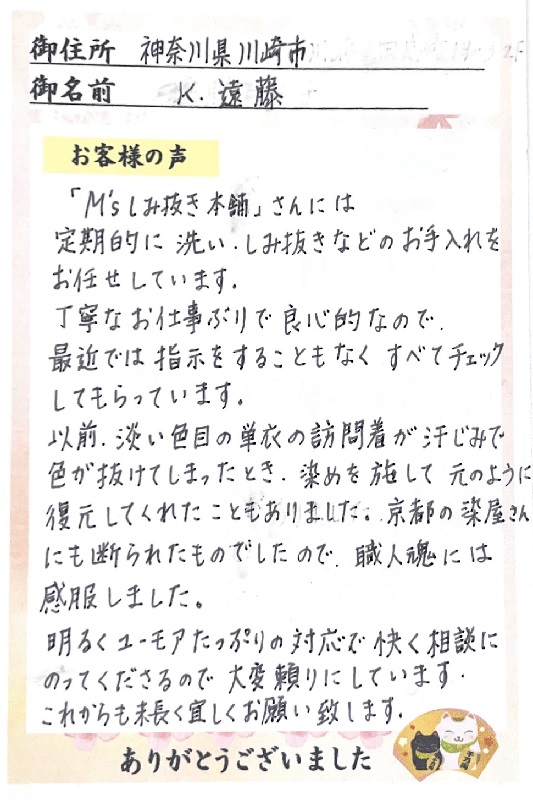 御住所 神奈川県川崎市
御名前 K. 遠藤
お客様の声
「M'sしみ抜き本舗」さんには
定期的に洗い・しみ抜きなどのお手入れを
お任せしています。
丁寧なお仕事ぶりで良心的なので、
最近では指示をすることもなくすべてチェック
してもらっています。
以前、淡い色目の単衣の訪問着が汗じみで
色が抜けてしまったとき、染めを施して元のように
復元してくれたこともありました。京都の染屋さん
にも断られたものでしたので、職人魂には
感服しました。
明るくユーモアたっぷりの対応で快く相談に
のってくださるので大変頼りにしています。
これからも末長く宜しくお願い致します。
ありがとうございました